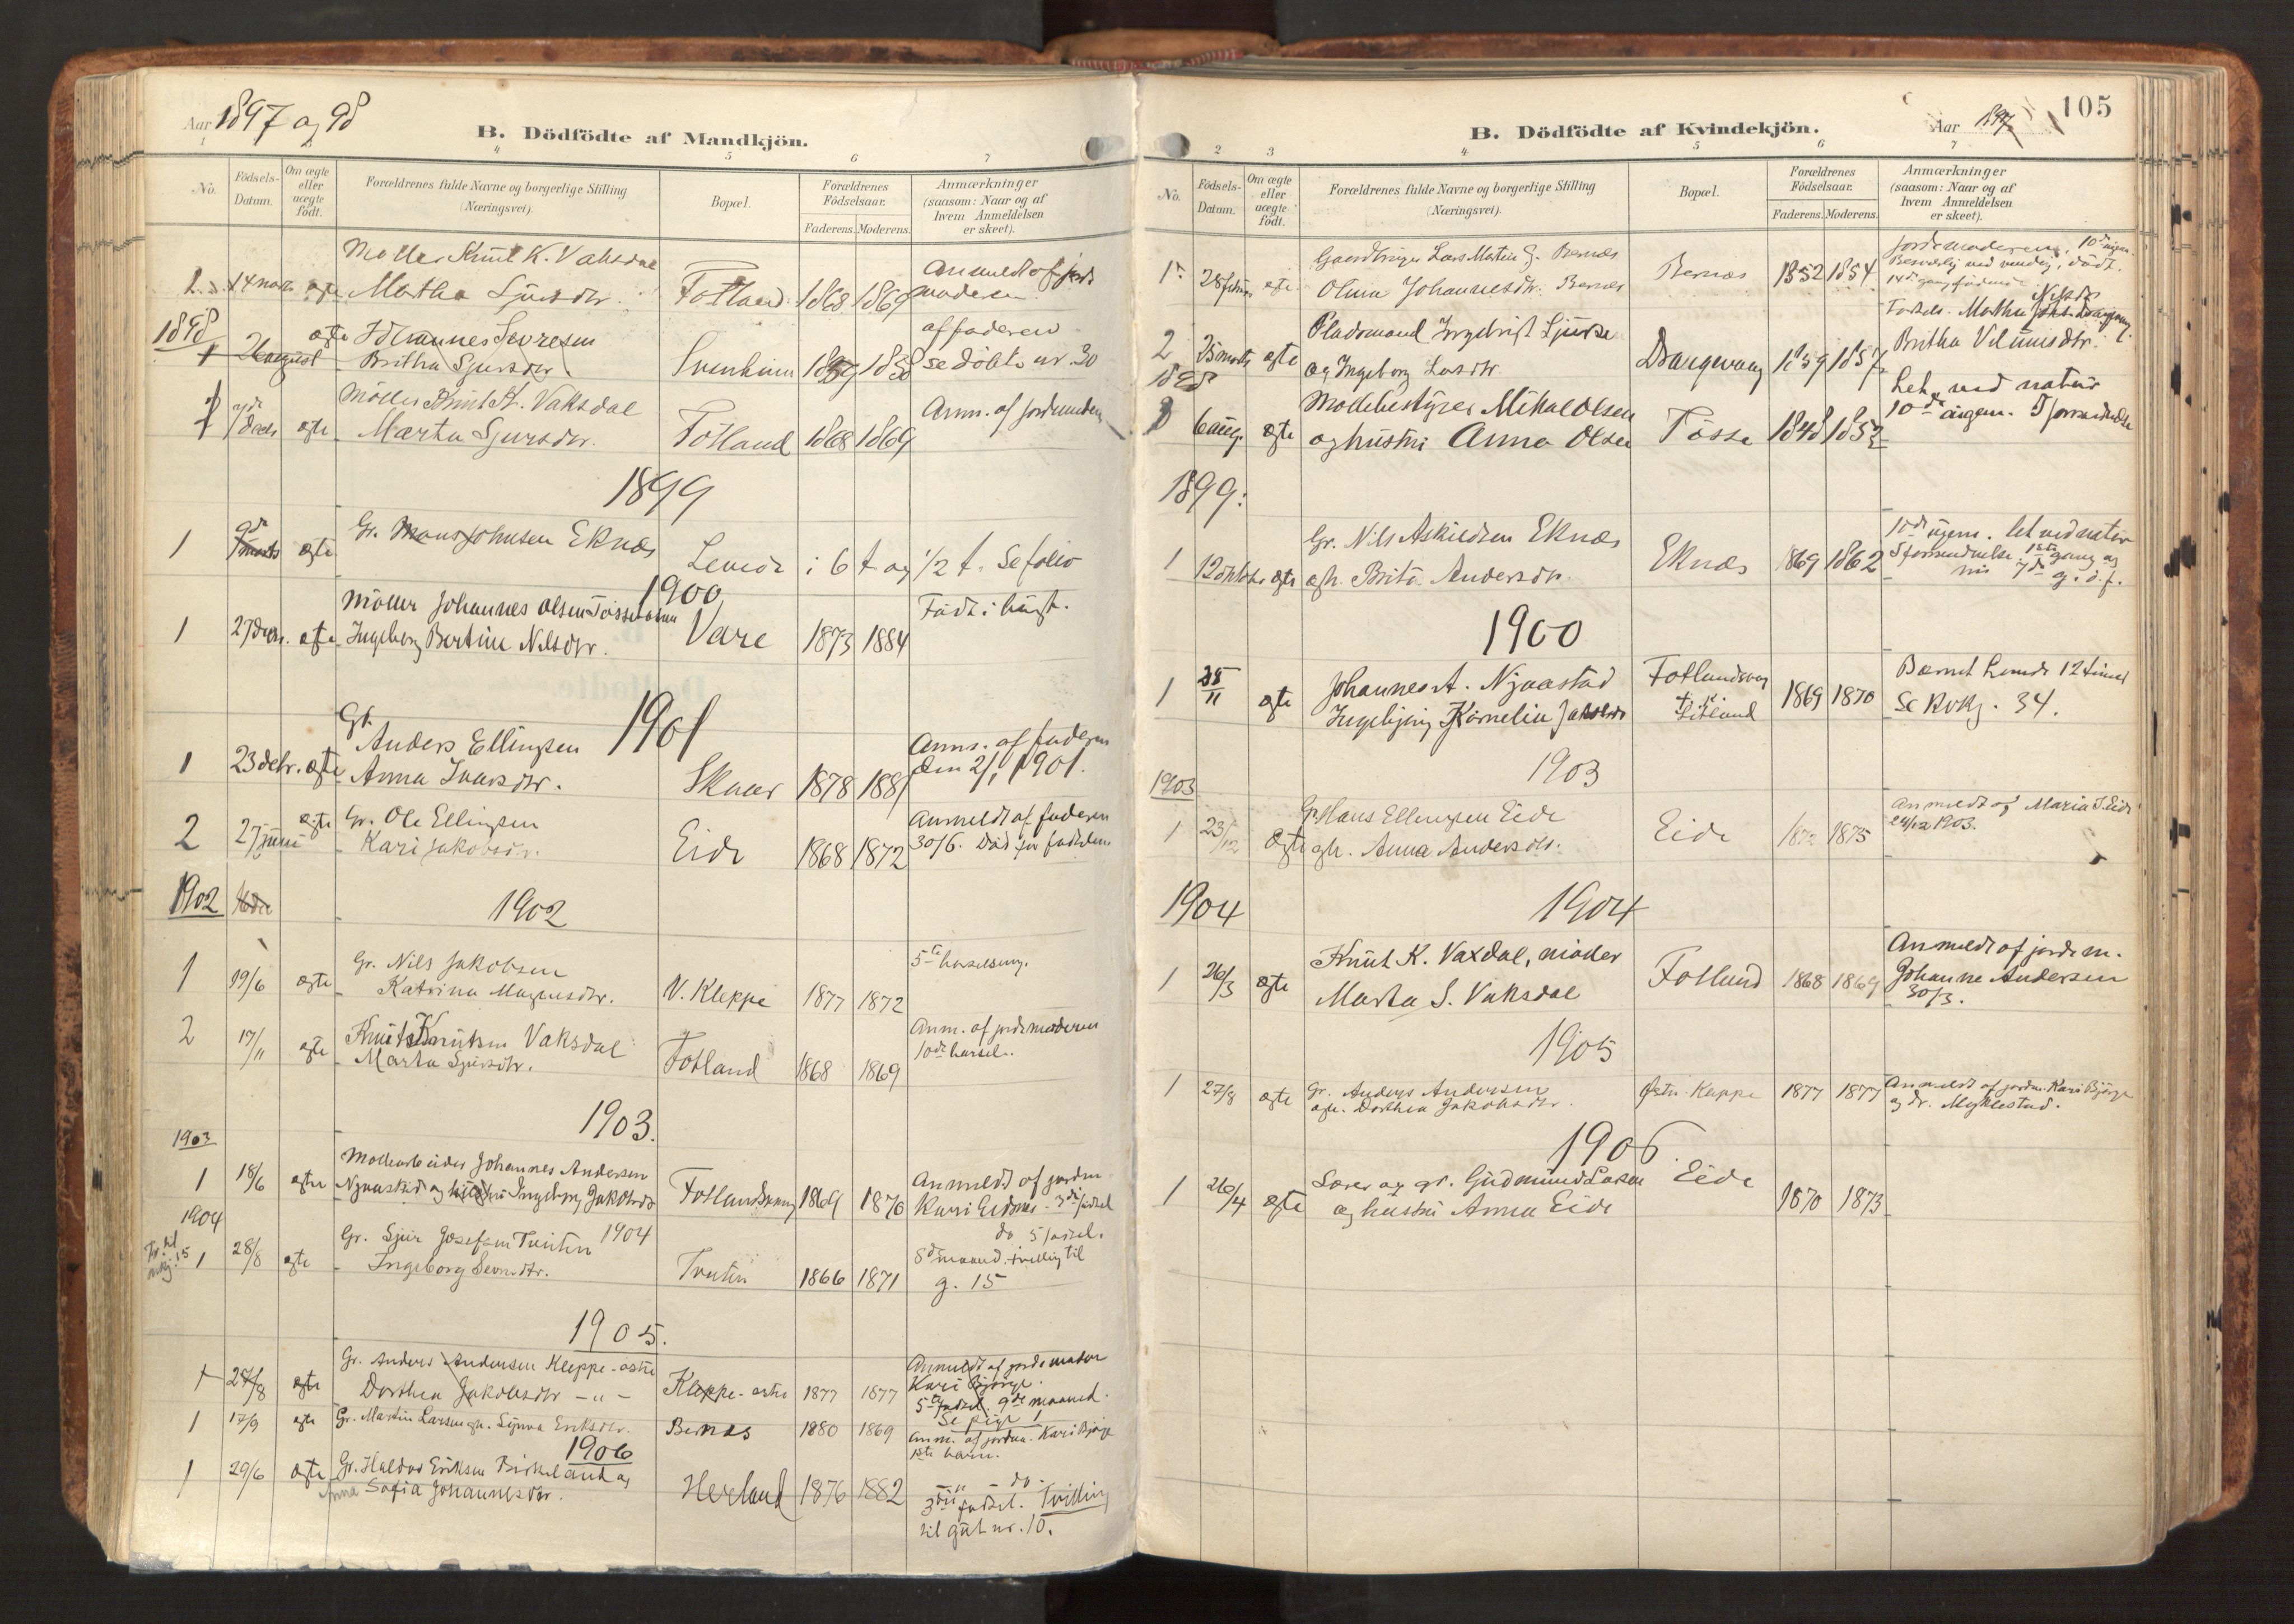 Aar 1897 og 98
B. Dödfödte af Mandkjön.
1 4 5 6 7
No.
Födsels-
Datum.
Om ægte
eller
uægte
födt.
Forældrenes fulde Navne og borgerlige Stilling
(Næringsvei).
Bopæl.
Forældrenes
Födselsaar.
Faderens. Moderens.
Anmærkninger
(saasom: Naar og af
hvem Anmeldelsen
er skeet).
Møller Knut K. Vaksdal
1 14 ægte Martha Sjursdtr. Fotland 1868 1869
Anmeldt af jord-
moderen
1898
1 2 august ægte Johannes
Britha Sjursdtr.
af faderen
se döbte nr. 30
Møller Knut K. Vaksdal
7de
ægte Marta Sjursdtr. Fotland 1868 1869
Anm. af jordmoderen
1899
1 9de marts ægte Gr. Mons Johnsen Eknæs
Levede i 6 t og 1/2 t. Se folio
1900
Møller Johannes Olsen
1 27 ægte Ingeborg Bertine Nilsdtr. Vare 1873 1884
Født i
1901
Gr.
Anders Ellingsen
1 23 ægte Anna Ivarsdtr. Skaar 1878 1881
Anm. af faderen
den 2/1 1901.
2 27 juni ægte Gr. Ole Ellingsen
Kari Jakobsdtr. Eide 1868 1872
Anmeldt af faderen
30/6. Död før fødselen
1902
1902
1 19/6 ægte Gr. Nils Jakobsen
Katrina Magnusdtr. N. Kleppe 1877 1872
5te barselseng.
2 17/11 ægte Knut Knutsen Vaksdal
Marta Sjursdtr. Fotland 1868 1869
Anm. af jordmoderen
10de barsel.
1903.
1903
Møllearbeider Johannes Andersen
1 18/6 ægte Njaastad og hustru Ingeborg Jakobsdr Fotlandsvaag 1869 1870
Anmeldt af jordm.
Kari Eidsnes. 3die fødsel
1904
1904
1 28/8 ægte Gr. Sjur Josefsen Tveiten
Ingeborg Tveiten 1866 1871
do 5 fødsel.
8de maaned. tvilling til
g. 15
1905.
1 27/8 ægte Gr. Anders Andersen Kleppe - østre
Dorthea Jakobsdtr - " - Kleppe - østre 1877 1877
Anmeldt af jordemoder
Kari Bjørge.
5te fødsel. 9de maaned.
Se pige 1
1 17/9 ægte Gr. Martin Larsen gh. Synva Eriksdtr. Bernes 1880 1869
Anm. af jordm. Kari Bjørge
1ste barn.
1906
1 29/6 ægte Gr. Haldor Eriksen Birkeland og
Anna Sofia Johannesdtr. Herland 1876 1882
- " - do -
3die fødsel. Tvilling
til gut nr. 10.
105
B. Dödfödte af Kvindekjön.
Aar 1897
2 3 4 5 6 7
No.
Födsels-
Datum.
Om ægte
eller
uægte
födt.
Forældrenes fulde Navne og borgerlige Stilling
(Næringsvei).
Bopæl.
Forældrenes
Födselsaar.
Faderens. Moderens.
Anmærkninger
(saasom: Naar og af
hvem Anmeldelsen
er skeet).
Gaardbruger Lars Martin G. Bernæs
1 28 februar ægte Olina Johannesdtr. Bernæs Bernæs 1852 1854
Jordemoderen. 10de
Besværlig ved vending, dödt.
2 25 marts ægte Pladsmand Ingebrigt Sjursen
og Ingeborg Larsdtr. 1859 1857
Britha Vilumsdtr.
1898
Møllebestyrer Mikal Olsen
6 aug. ægte og hustru Anna Olsen Tösse 1848 1852
Let, ved natur
10de
1899:
1 12 oktober ægte Gr. Nils Askildsen Eknæs
gh. Brita Andersdtr. Eknæs 1869 1862
let ved natur
1900
1 25/11 ægte Johannes A. Njaastad
Ingebjørg Kornelia Jakobsdr Fotlandsvaag 1869 1870
Barnet levede 12 timer
Se 34.
1903
1903
1 23/12 ægte Gr. Hans Ellingsen Eide
gh. Anna Andersdtr. Eide 1872 1875
Anmeldt af Maria J. Eide
24/12 1903.
1904
1904
1 26/3 ægte Knut K. Vaxdal, møller
Marta S. Vaksdal Fotland 1868 1869
Anmeldt af jordem.
Johanne Andersen
30/3.
1905
1 27/8 ægte Gr. Anders Andersen
gh. Dorthea Jakobsdtr. Østre Kleppe 1877 1877
Anmeldt af jordm. Kari Bjørge
og dr. Myklestad.
1906
1 26/4 ægte Lærer og gr. Gudmund Larsen
og hustru Anna Eide Eide 1870 1873